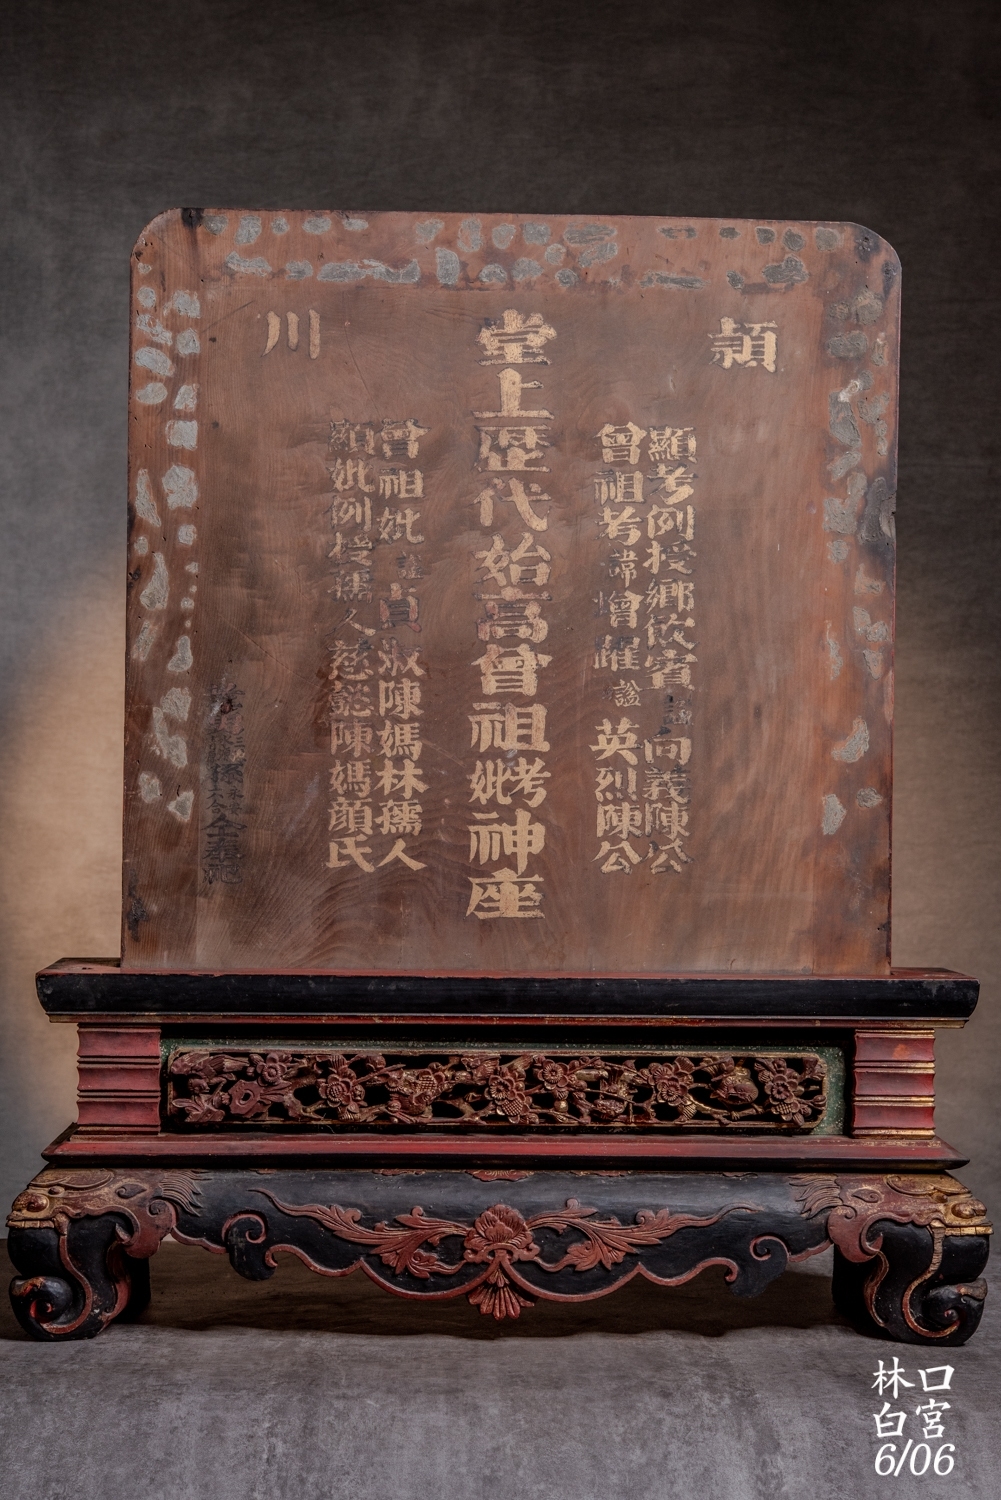 頴川
顯考例授鄉飲賓尚義陳公
曾祖考諱增耀謚英烈陳公
堂上歷代始高曾祖考妣神座
曾祖妣謚貞淑陳媽林孺人
顯妣例授孺人慈懿陳媽顏氏
仝奉祀
林口
白宮
6/06